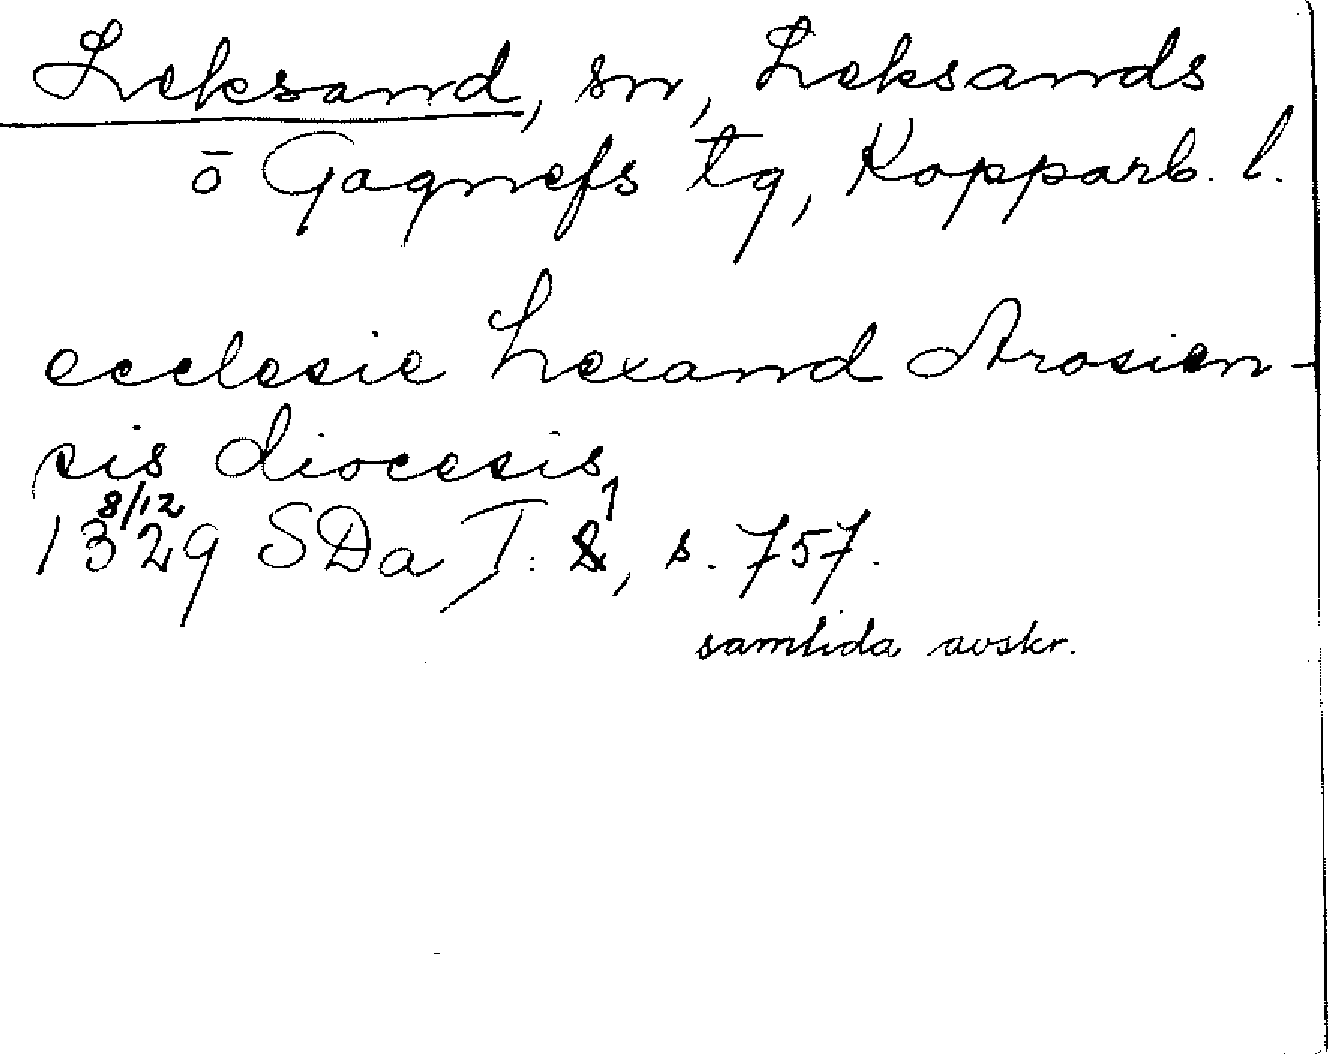 Leksand, sn, Leksands
ō Gagnefs tg, Kopparb. l.
ecclesie Lexand Arosien-
sis diocesis
1329 8/12 SDa I: 1, s. 757.
samtida avskr.